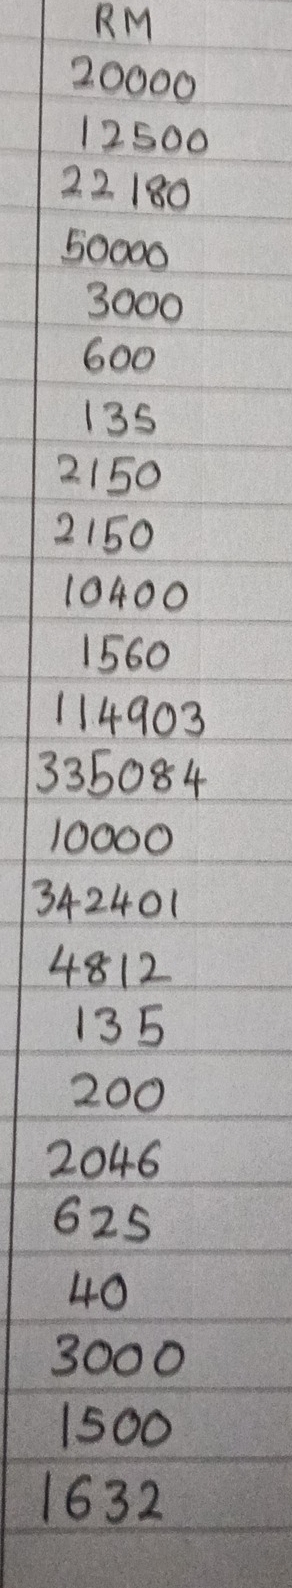 RM
20000
12500
22180
50000
3000
600
135
2150
2150
10400
1560
114903
335084
10000
342401
4812
135
200
2046
625
40
3000
1500
1632